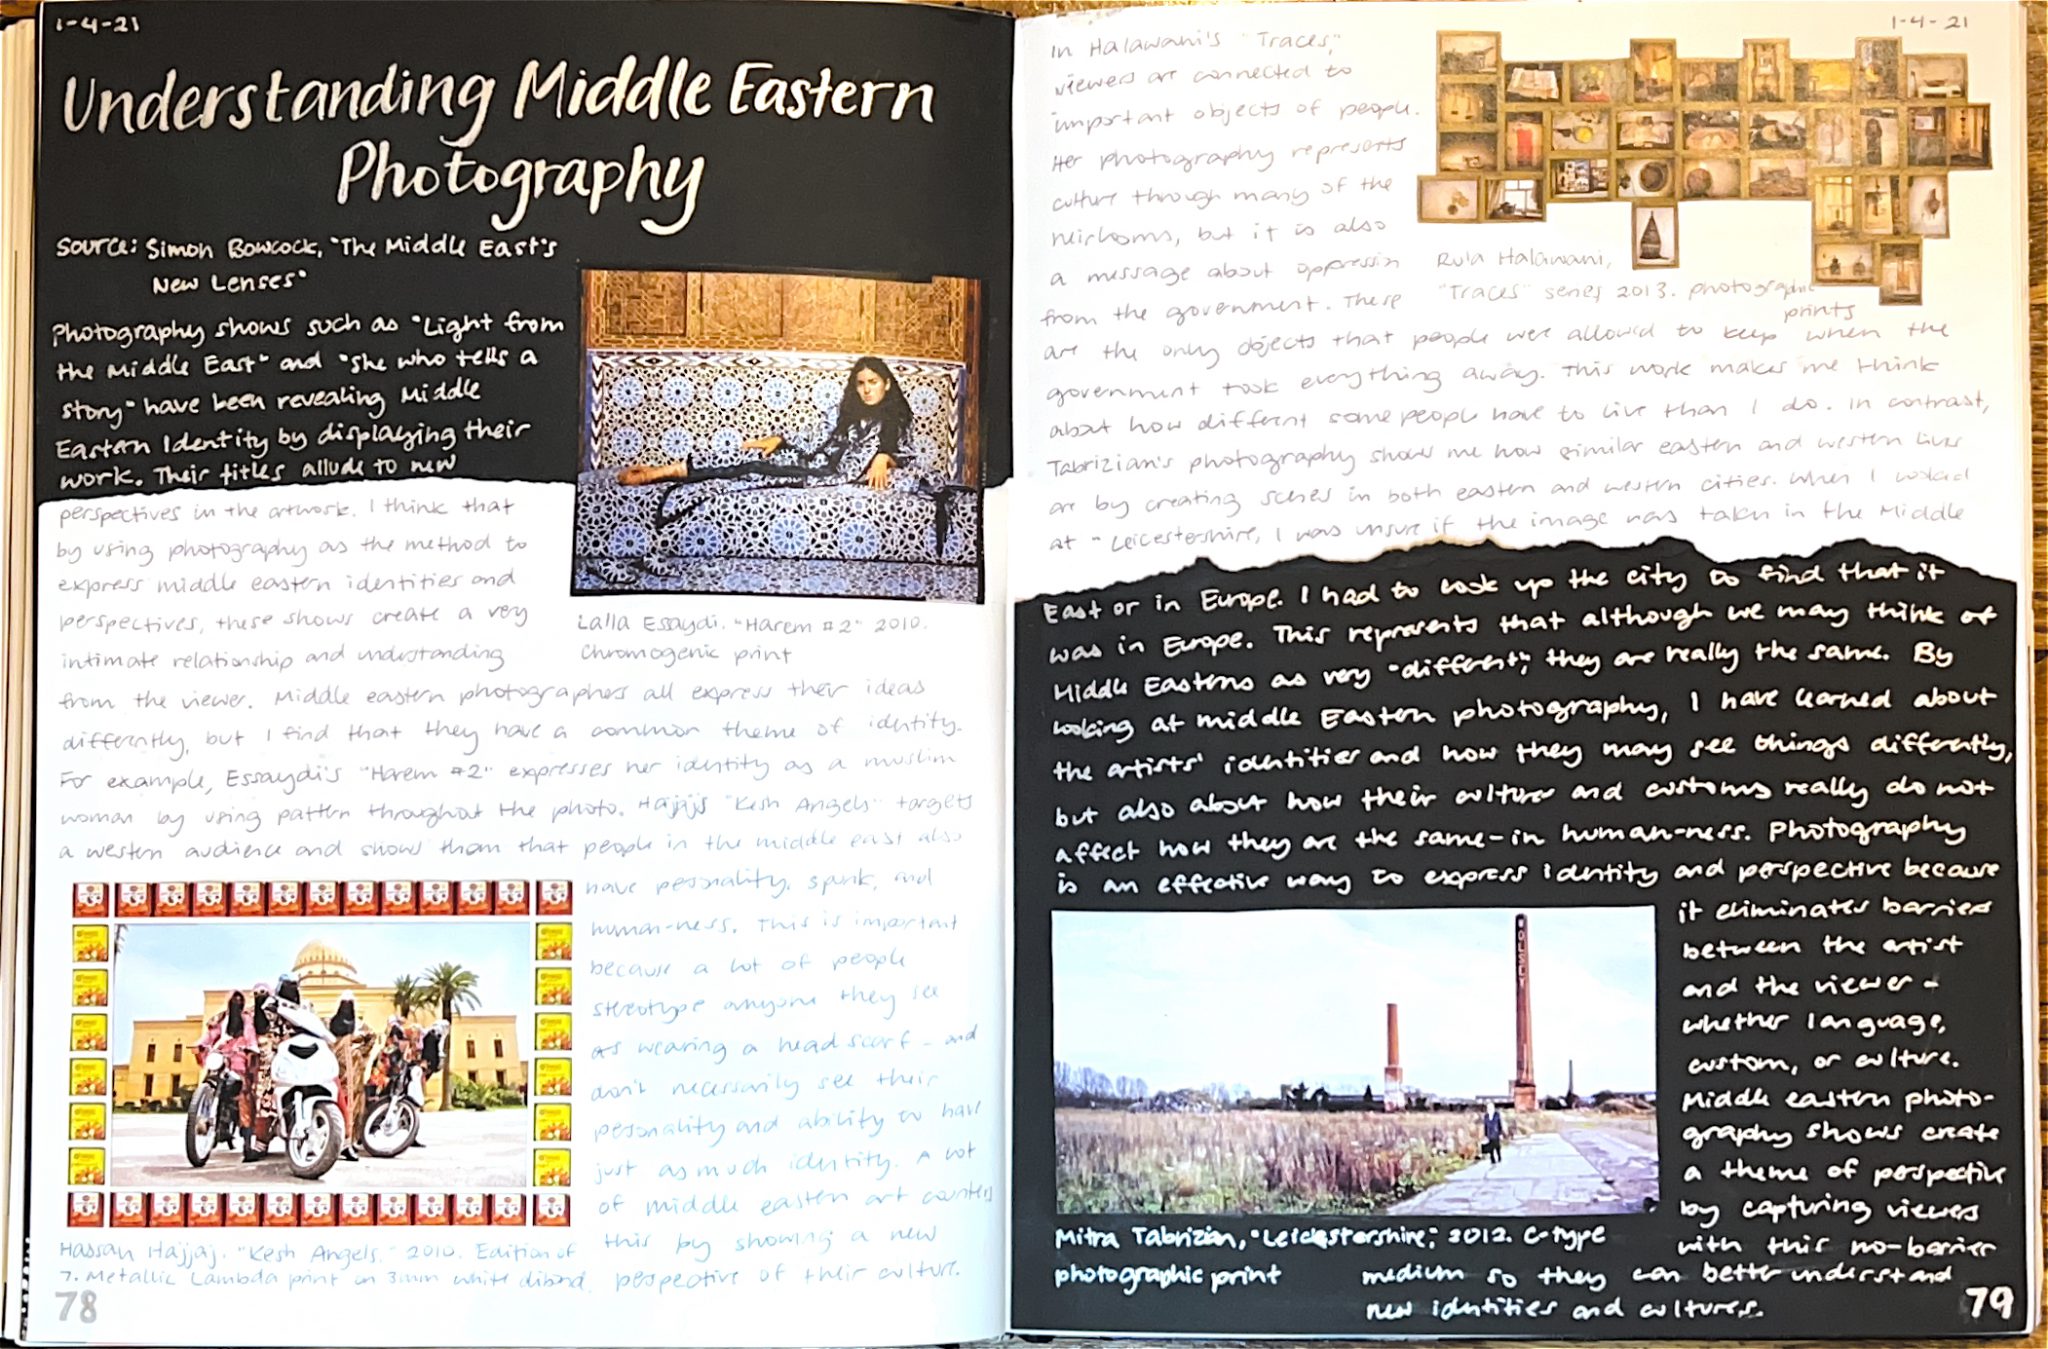 1-4-21
Understanding Middle Eastern
Photography
Source: Simon Bowcock, "The Middle East's
New Lenses"
Photography shows such as "Light from
the Middle East" and "She who tells a
story" have been revealing Middle
Eastern Identity by displaying their
work. Their titles allude to new
perspectives in the artwork. I think that
by using photography as the method to
express middle eastern identities and
perspectives, these shows create a very
intimate relationship and understanding
from the viewer. Middle eastern photographers all express their ideas
differently, but I find that they have a common theme of identity.
For example, Essaydi's "Harem #2" expresses her identity as a muslim
woman by using pattern throughout the photo. Hajjaj's "Kesh Angels" targets
a western audience and shows them that people in the middle east also
have personality, spunk, and
human-ness. This is important
because a lot of people
stereotype anyone they see
as wearing a head scarf - and
don't necessarily see their
personality and ability to have
just as much identity. A lot
of middle eastern art counters
this by showing a new
perspective of their culture.
Lalla Essaydi. "Harem #2" 2010.
Chromogenic print
Hassan Hajjaj. "Kesh Angels." 2010. Edition of
7. Metallic Lambda print on 3mm white dibond.
78
1-4-21
In Halawani's "Traces,"
viewers are connected to
important objects of people.
Her photography represents
culture through many of the
heirlooms, but it is also
a message about oppression
from the government. These
are the only objects that people were allowed to keep when the
government took everything away. This work makes me think
about how different some people have to live than I do. In contrast,
Tabrizian's photography shows me how similar eastern and western lives
are by creating scenes in both eastern and western cities. When I looked
at "Leicestershire, I was unsure if the image was taken in the Middle
East or in Europe. I had to look up the city to find that it
was in Europe. This represents that although we may think of
Middle Easterns as very "different", they are really the same. By
looking at middle Eastern photography, I have learned about
the artists' identities and how they may see things differently,
but also about how their cultures and customs really do not
affect how they are the same-in human-ness. Photography
is an effective way to express identity and perspective because
it eliminates barriers
between the artist
and the viewer -
whether language,
custom, or culture.
Middle eastern photo-
graphy shows create
a theme of perspective
by capturing viewers
with this no-barrier
medium so they can better understand
new identities and cultures.
Rula Halawani,
"Traces" series 2013. photographic
prints
WOLSEY
Mitra Tabrizian, "Leicestershire", 2012. C-type
photographic print
79